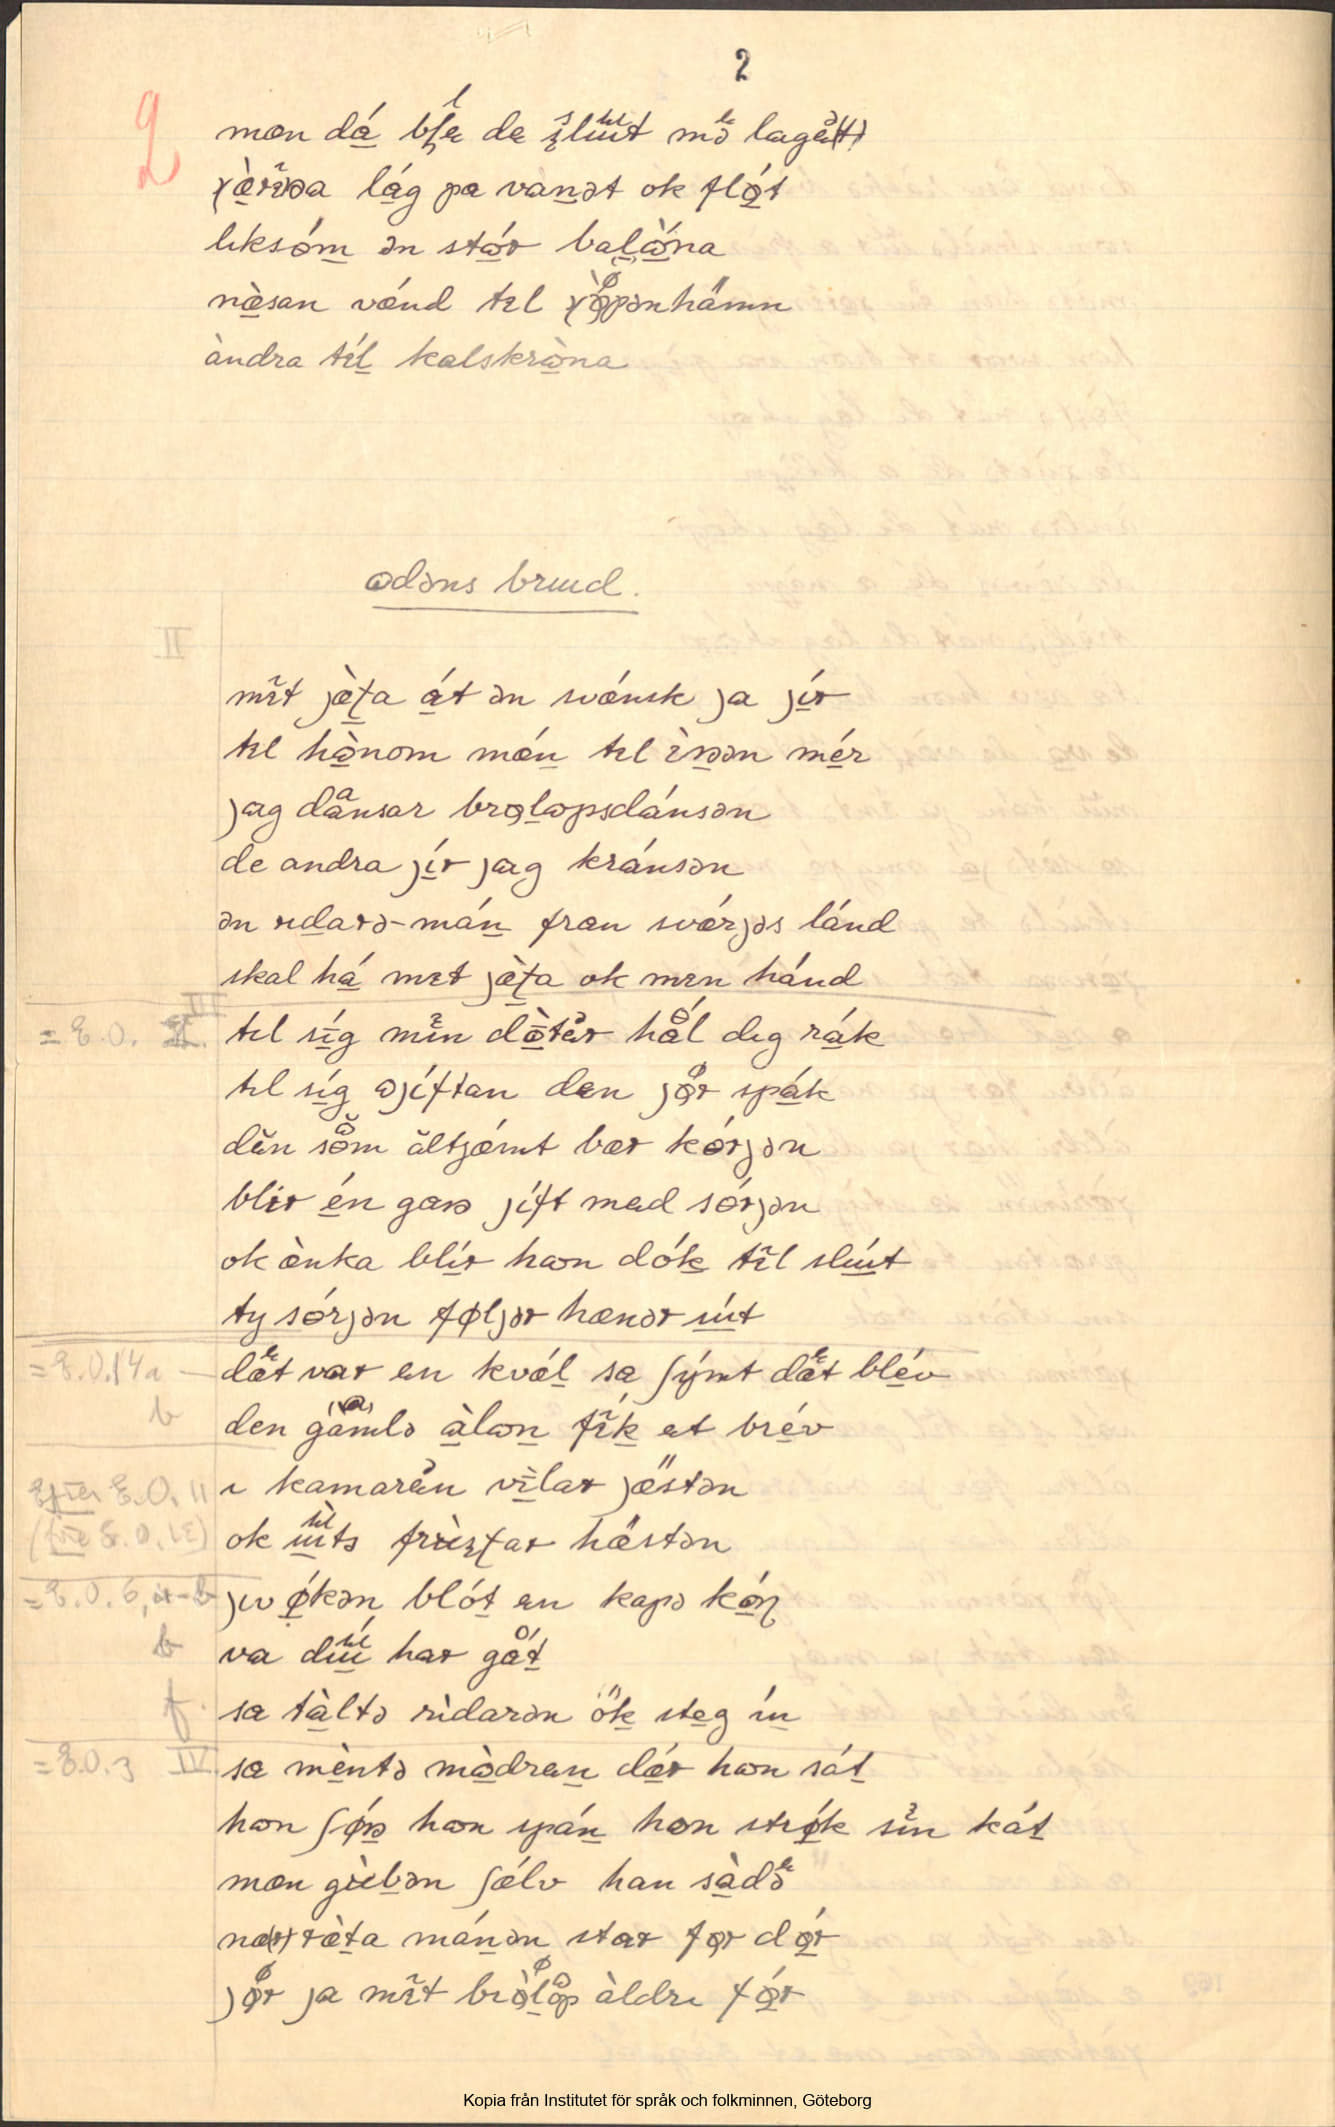 2
2 mən dá ble de slʉt mə lagə(t)
kæ̀rɪŋa lág pa vánət ok flǿt
liksóm ən stór balòna
næ̀san vǽnd tɪl kø̀pənhämn
àndra tɪ́l kalskròna
odəns brʉd.
II
mɪ̆t jæ̀ʈa át ən svǽnsk ja jír
tɪl hònom mǽn tɪl ìŋən mér
jag dånsar brøləpsdánsən
de andra jír jag kránsən
ən ridarə-mán frən svǽrjəs lánd
skal há mɪt jæ̀ʈa ok mɪn hánd
= E.O. III. tɪl síg mɪ̆n dòtər hål dɪg rák
tɪl síg ojíftan den jǿr spák
dĕn sŏm ăltjǽmt bær kórjən
blir én gaŋ jíft med sórjən
ok ènka blír hon dók tɪ̆l slʉ́t
ty sórjən følјər hænər ʉ́t
= E.O. 14a dæt var en kvǽl sa ʃýmt dæt blév
b den gamlə àlən fɪ̆k et brév
Efter E.O. 11 ɪ kamarən vìlar jæ̋stən
(före E.O. 12) ok ʉtə frʉ̀sʈar hæ̋stən
= E.O. 6, a-b jɪv ǿkən blót en kapə kóɳ
b va dʉ́ har gåt
f. sa tàltə rìdarən ŏk steg ín
= E.O. 3 IV sa mèntə mòdren dǽr hon sát
hon ʃǿŋ hon spán hon strǿk sɪ̆n kát
mən gʉ̀bən ʃǽlv han sàdə
næ(r) ræ̀ta mánən star før dǿr
jør ja mɪ̆t brø̀ləp àldrɪ fǿr
Kopia från Institutet för språk och folkminnen, Göteborg